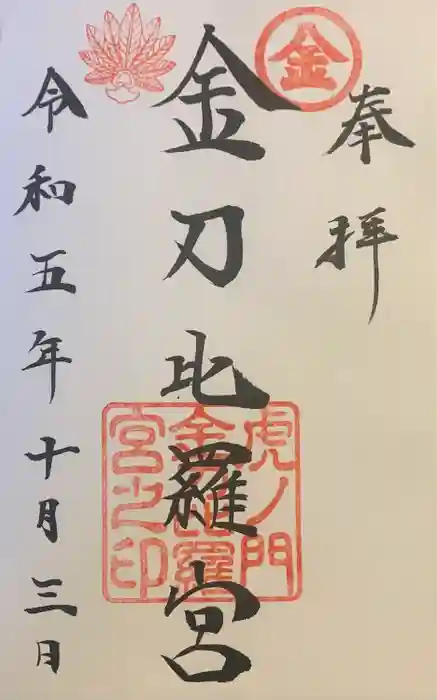 奉拝
金
金刀比羅宮
虎ノ門
金刀比羅
宮之印
令和五年十月三日